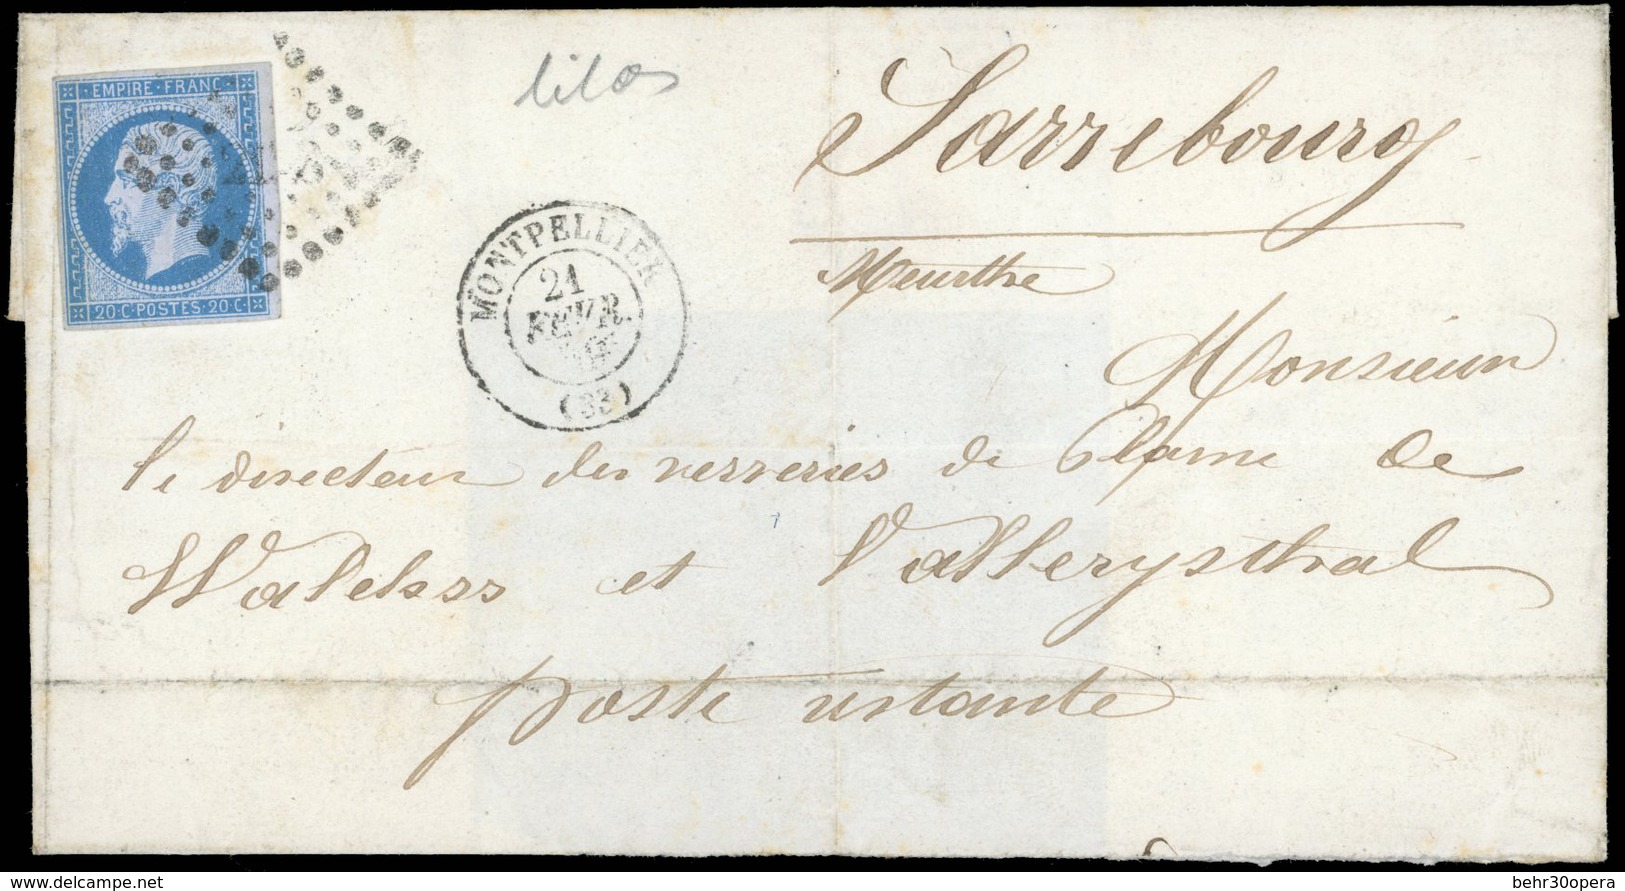 EMPIRE · FRANC ·
20·C·POSTES·20·C·
lilas
MONTPELLIER
21
FEVR.
(33)
Sarrebourg
Meurthe
Monsieur
le directeur des verreries de Plaine de
Walchss et Vallerysthal
poste restante
delcampe.net
behr30opera